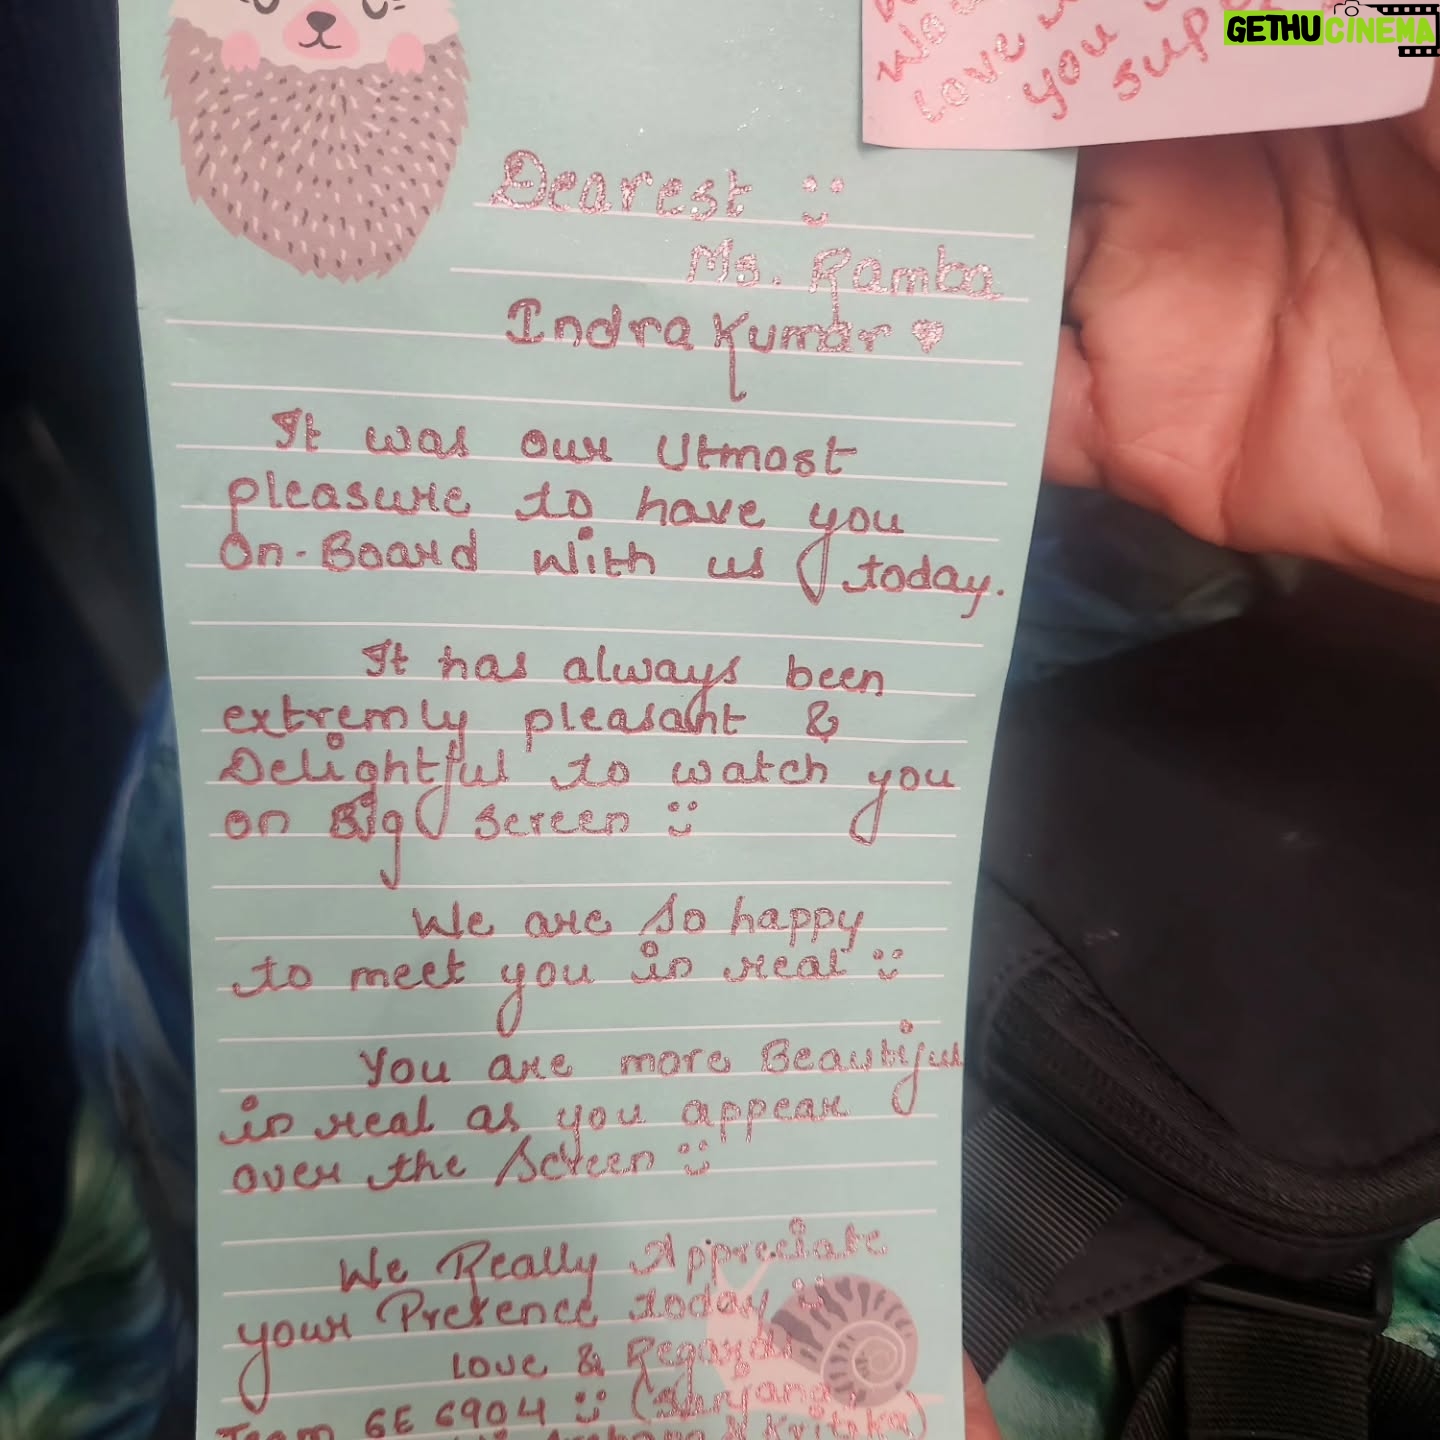 love
you
GETHU CINEMA
Dearest
Ms. Ramba
Indra Kumar
It was our Utmost
pleasure to have you
On-Board With us today.
It has always been
extremly pleasant &
Delightful to watch you
on Big screen
We are so happy
to meet you in real
You are more Beautiful
in real as you appear
over the screen
We Really Appreciate
your Presence today
Love & Regards
Team 6E 6904
Kritika)